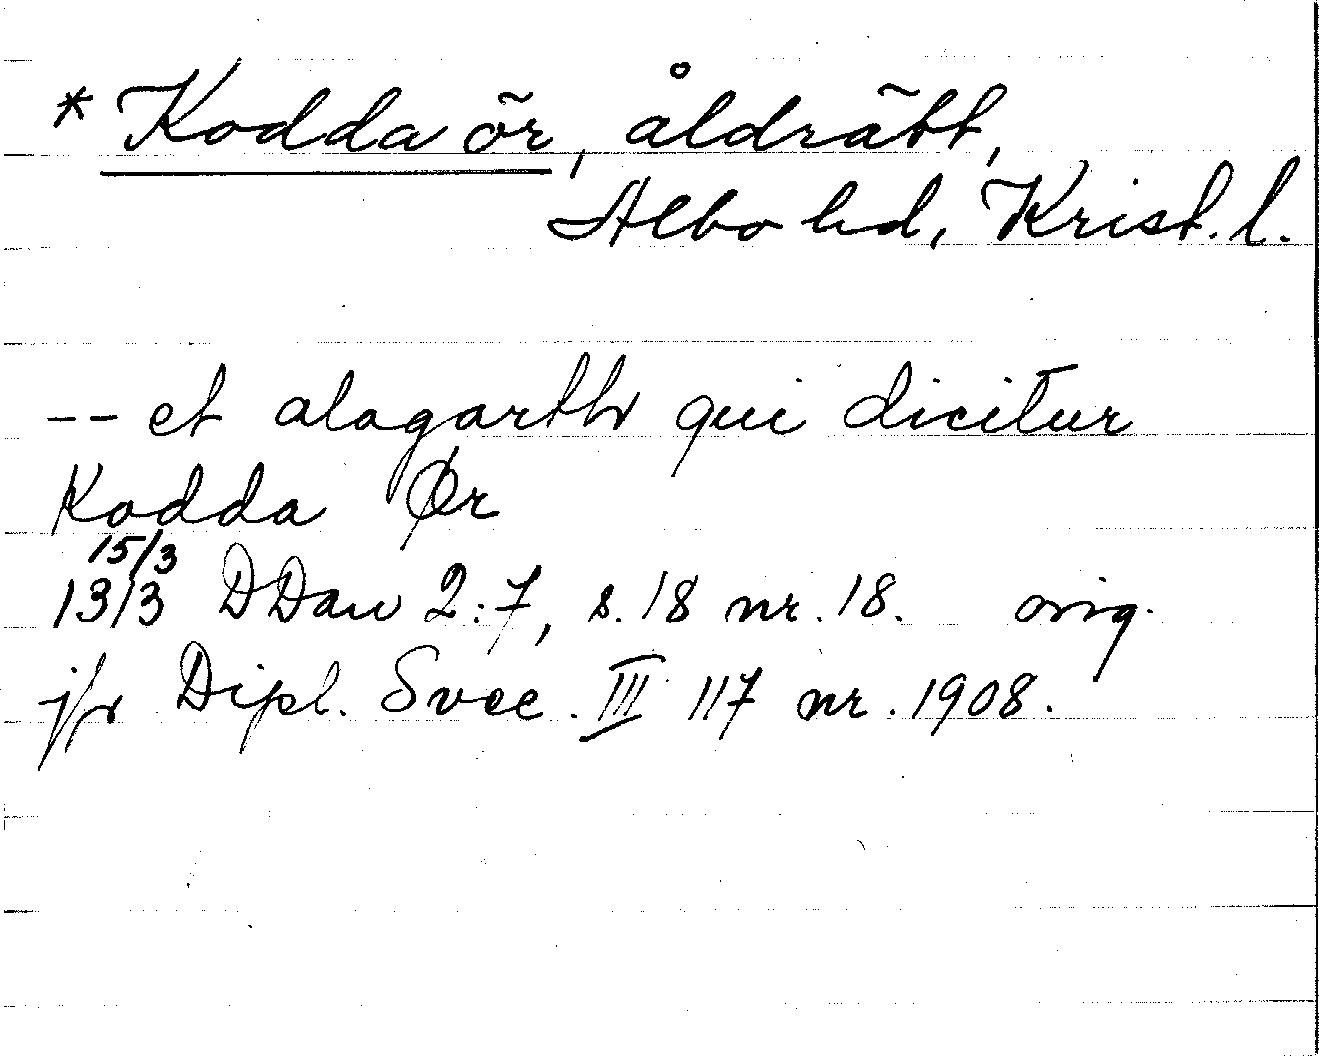 * Kodda ör, åldrätt,
Albo hd, Krist. l.
-- et alagarth qui dicitur
Kodda Ør
15/3
13/3 DDan 2:7, s. 18 nr. 18. orig.
jfr Dipl. Svec. III 117 nr. 1908.